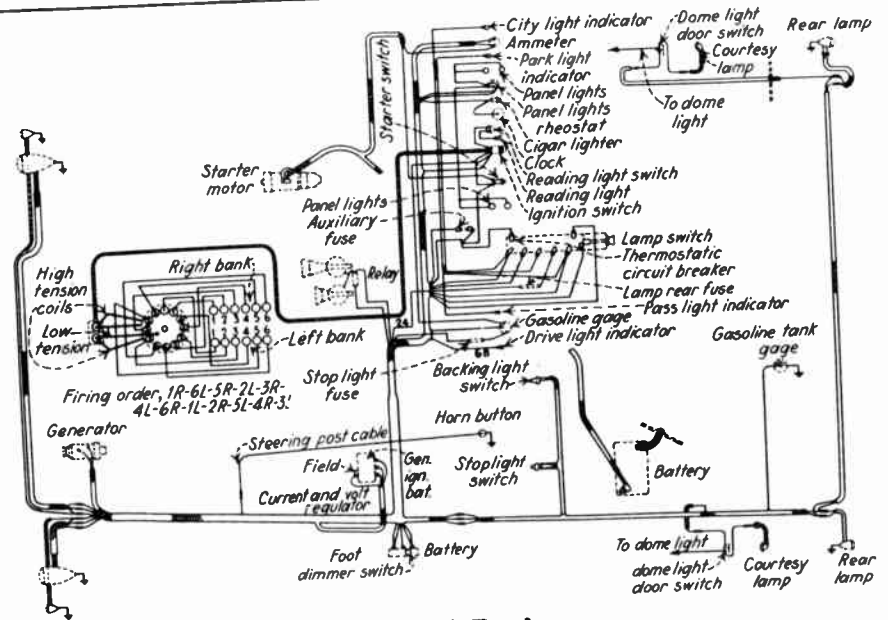 City light indicator
Ammeter
Park light
indicator
Panel lights
Panel lights
rheostat
Cigar lighter
Clock
Reading light switch
Reading light
Ignition switch
Dome light
door switch
Courtesy
lamp
Rear lamp
To dome
light
Starter switch
Starter
motor
Panel lights
Auxiliary
fuse
Relay
Lamp switch
Thermostatic
circuit breaker
Lamp rear fuse
Pass light indicator
Gasoline gage
Drive light indicator
High
tension
coils
Low
tension
Right bank
1 2 3 4 5 6
Left bank
Firing order, 1R-6L-5R-2L-3R-
4L-6R-1L-2R-5L-4R-3L
Stop light
fuse
Backing light
switch
Gasoline tank
gage
Generator
Steering post cable
Horn button
Field
Gen.
ign.
bat.
Current and volt
regulator
Stoplight
switch
Battery
Foot
dimmer switch
Battery
To dome light
dome light
door switch
Courtesy
lamp
Rear
lamp